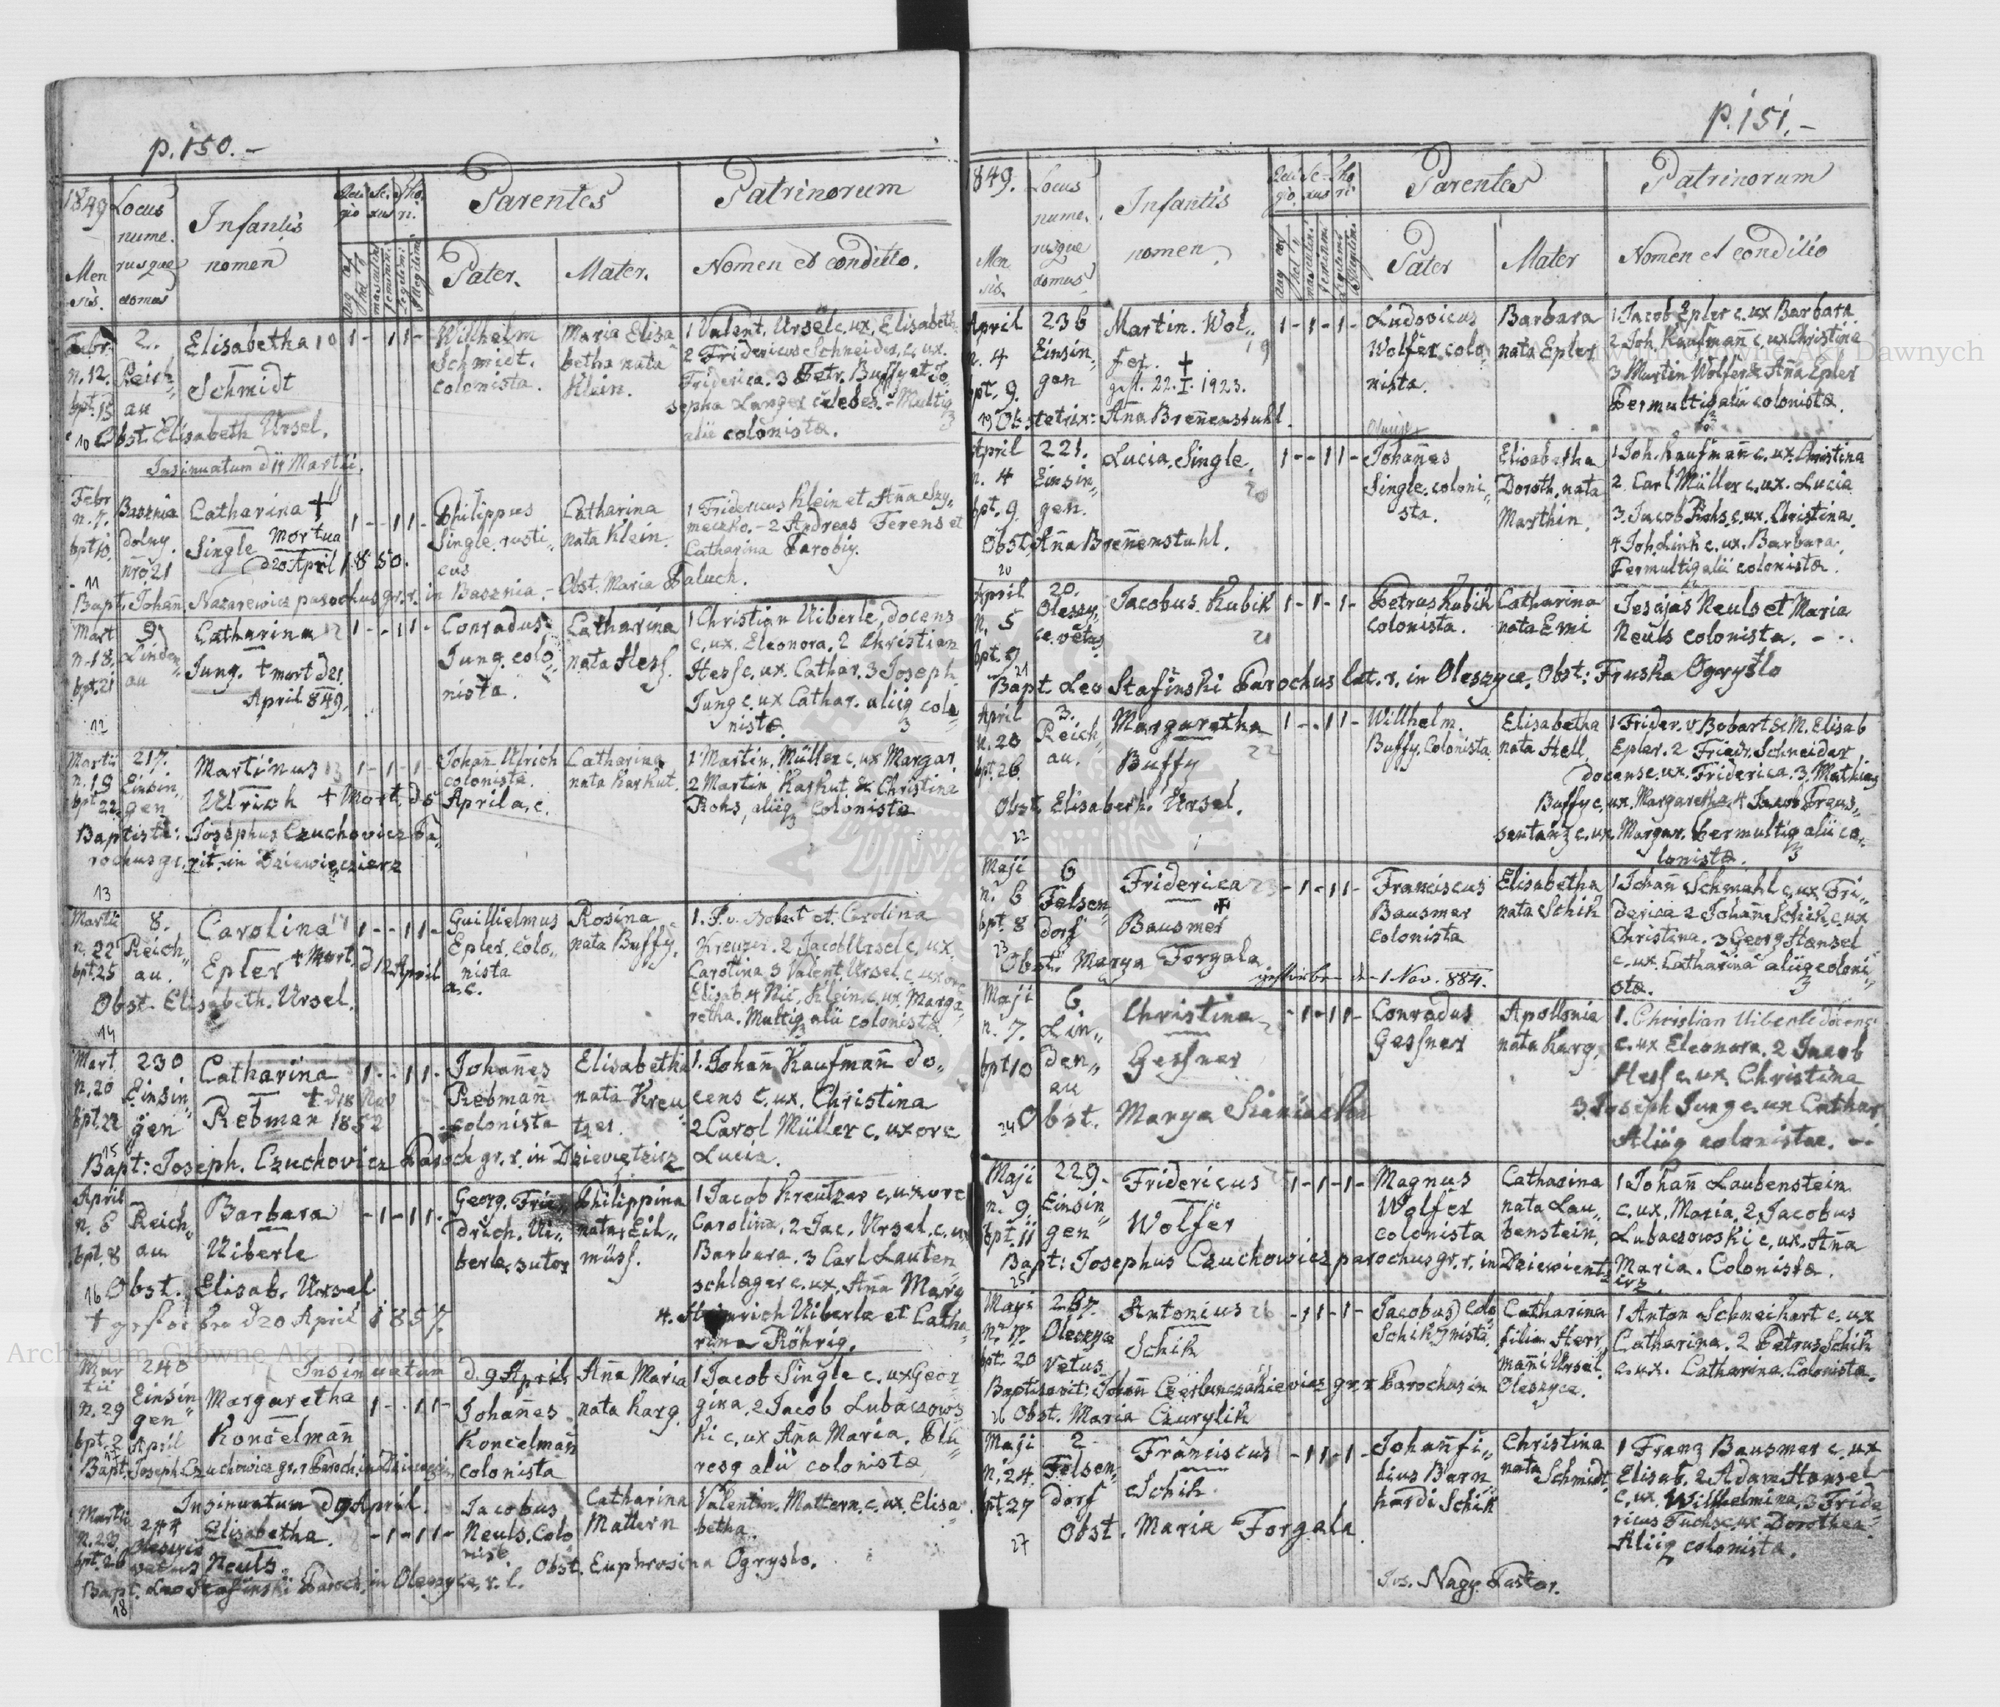 p. 150. –
1849
Locus nume. rusque domus
Infantis nomen
Parentes
Patrinorum
Mensis.
Pater.
Mater.
Nomen et conditio.
Febr. n. 12. bpt. 15
2. Reichau
Elisabetha 10 Schmidt
1 - 1 1 -
Wilhelm Schmidt. colonista.
Maria Elisabetha nata Klein.
1 Valent. Ursel c. ux. Elisabeth.
2 Fridericus Schneider, c. ux.
Friderica. 3 Petr. Buffy et Josepha Langer celebes. - Multiq
alii colonistæ.
10 Obst. Elisabeth Ursel.
Insinuatum d 14 Martii.
Febr n. 7. bpt 10.
Basznia dolny. nro 21
Catharina + Single mortua d 20 April 1850.
1 - - 1 1 -
Philippus Single. rusticus
Catharina nata Klein.
1 Fridericus Klein et Anna Szymeczko. - 2 Andreas Ferens et
Catharina Parobiy.
11
Bapt. Johañ. Nazarewicz parochus gr. r. in Basznia. - Obst. Maria Paluch.
Mart n. 18. bpt. 21
9 Lindenau
Catharina 12 Jung. + mort d 21. April 849.
1 - - 1 1 -
Conradus Jung. colonista.
Catharina nata Hess.
1 Christian Uiberle, docens
c. ux. Eleonora. 2 Christian
Hess c. ux. Cathar. 3 Joseph
Jung c. ux Cathar. aliiq colonistæ
12
Martii n. 19 bpt. 22.
217. Einsingen
Martinus 13 Ulrich + Mort. d 5 April a. c.
1 - 1 - 1 -
Johañ Ulrich colonista.
Catharina nata Karkut.
1 Martin. Müller c. ux Margar.
2 Martin Karkut & Christina
Rohs, aliiq colonistæ
Baptista: Josephus Czuchovicz Parochus gr. rit. in Dziewięcierz
13
Martii n. 22 bpt. 25
8. Reichau.
Carolina 14 Epler + Mort. d 12 April a. c.
1 - - 1 1 -
Guilielmus Epler. colonista
Rosina nata Buffy.
1. F. v. Bobart et. Carolina
Kreuzer. 2 Jacob Ursel c. ux.
Carolina 3 Valent. Ursel. c. uxore
Elisab. 4 Nic. Klein. c. ux. Margaretha. Multiq alii colonistæ
Obst. Elisabeth. Ursel.
14
Mart. n. 20 bpt. 22
230 Einsingen
Catharina Rebman + d 18 Nov 1852
1 - - 1 1 -
Johañes Rebmañ colonista
Elisabetha nata Kreutzer.
1. Johañ Kaufmañ docens c. ux. Christina
2 Carol Müller c. uxore
Lucia.
15
Bapt: Joseph. Czuchovicz Paroch gr. r. in Dzieviętzirz
April n. 6 bpt. 8
Reichau
Barbara Uiberle
- 1 - 1 1 -
Georg. Friedrich. Uiberle. sutor
Philippina nata Eilmüss.
1 Jacob Kreutzer c. uxore
Carolina. 2 Jac. Ursel. c. ux
Barbara. 3 Carl Lautenschlæger c. ux. Aña Marg
4. Heinrich Uiberle et Catharina Röhrig.
16 Obst. Elisab. Ursel
+ gestorben d 20 April 1857.
Insinuatum d. 9 April
Martii n. 29 bpt. 2 April
240 Einsingen
Margaretha Koncelmañ
1 - - 1 1 -
Johañes Koncelmañ colonista
Aña Maria nata Karg.
1 Jacob Single c. ux Georgina. 2 Jacob Lubaczowski c. ux Aña Maria, Pluresq alii colonistæ
Bapt. Joseph Czuchowicz gr. r Paroch. in
Insinuatum d 9 April.
Martii n. 23. bpt. 26
244 Oleszyce vetus
Elisabetha. Neuls.
- 1 - 1 1 -
Jacobus Neuls. colonist
Catharina Mattern
Valentin. Mattern. c. ux. Elisabetha.
Obst. Euphrosina Ogrysło.
Bapt. Leo Stafinski Paroch. in Oleszyce, r. l.
18
p. 151. –
1849.
Locus nume. rusque domus
Infantis nomen
Parentes
Patrinorum
Mensis.
Pater
Mater
Nomen et conditio
April n. 4 bpt. 9.
236 Einsingen
Martin. Wolfer. + gest. 22. I. 1923.
19
1 - 1 - 1 -
Ludovicus Wolfer. colonista.
Barbara nata Epler
1 Jacob Epler c. ux Barbara.
2 Joh. Kaufmañ c. ux Christina
3 Martin Wolfer & Aña Epler
Permultiq alii colonistæ.
19 Obstetrix: Aña Breñenstuhl.
April n. 4 bpt. 9
221. Einsingen.
Lucia. Single.
20
1 - - 1 1 -
Johañes Single. colonista.
Elisabetha Doroth. nata Marthin.
1 Joh. Kaufmañ c. ux. Christina
2. Carl Müller c. ux. Lucia
3. Jacob Rohs. c. ux. Christina.
4 Joh. Link c. ux. Barbara.
Permultiq alii colonistæ.
Obst. Aña Breñenstuhl.
20
April n. 5 bpt. 9
20. Oleszyce. vetus
Jacobus. Kubik
21
1 - 1 - 1 -
Petrus Kubik colonista.
Catharina nata Emi
Jesajas Neuls et Maria
Neuls colonista. -
21
Bapt. Leo Stafinski Parochus lat. r. in Oleszyce. Obst: Fruska Ogrysło
April n. 20 bpt. 26
3. Reichau.
Margaretha Buffy
22
1 - - 1 1 -
Willhelm. Buffy. Colonista
Elisabetha nata Hell
1 Frider. v Bobart & M. Elisab
Epler. 2 Friedr. Schneider
docens c. ux. Friderica. 3. Mathias
Buffy c. ux. Margaretha. 4 Jacob
c. ux. Margar. Permultiq alii colonistæ.
Obst. Elisabeth. Ursel.
22
Maji n. 6 bpt. 8
6 Felsendorf
Friderica 23 Bausmer +
- 1 - 1 1 -
Franciscus Bausmer colonista
Elisabetha nata Schik
1 Johañ Schmahl c. ux Friderica 2 Johañ Schik. c. ux
Christina. 3 Georg Hænsel
c. ux. Catharina aliiq colonistæ.
23 Obst. Marya Forgala
gestorben den 1 Nov. 884.
Maji n. 7. bpt 10
6 Lindenau
Christina Gessner
- 1 - 1 1 -
Conradus Gessner
Apollonia nata Karg.
1. Christian Uiberle docens
c. ux Eleonora. 2 Jacob
Hess c. ux. Christina
3 Joseph Jung c. ux Cathar.
Aliiq colonistæ. -
24 Obst. Marya
Maji n. 9 bpt. 11
229. Einsingen
Fridericus Wolfer
1 - 1 - 1 -
Magnus Wolfer colonista
Catharina nata Laubenstein.
1 Johañ Laubenstein
c. ux. Maria. 2. Jacobus
Lubaczowski c. ux. Aña
Maria. Colonistæ.
Bapt: Josephus Czuchowicz parochus gr. r. in Dziewientzirz
25
Maji n. 17. bpt. 20
267. Oleszyce Vetus
Antonius 26 Schik
- 1 1 - 1 -
Jacobus Schik colonista
Catharina filia Hermañi Ursel.
1 Anton Schweikert c. ux
Catharina. 2 Petrus Schik
c. ux. Catharina. Colonistæ.
Baptisavit: Johañ gr. r Parochus in Oleszyce.
26 Obst. Maria Czurylik
Maji n. 24. bpt 27
2 Felsendorf
Franciscus Schik.
- 1 1 - 1 -
Johañ filius Barnhardi Schik
Christina nata Schmidt.
1 Franz Bausmer c. ux
Elisab. 2 Adam Hænsel
c. ux. Wilhelmina. 3 Fridericus Fuchs c. ux Dorothea.
Aliiq colonista.
Obst. Maria Forgala
27
Jos. Nagy. Pastor.
Archiwum Główne Akt Dawnych
Archiwum Główne Akt Dawnych